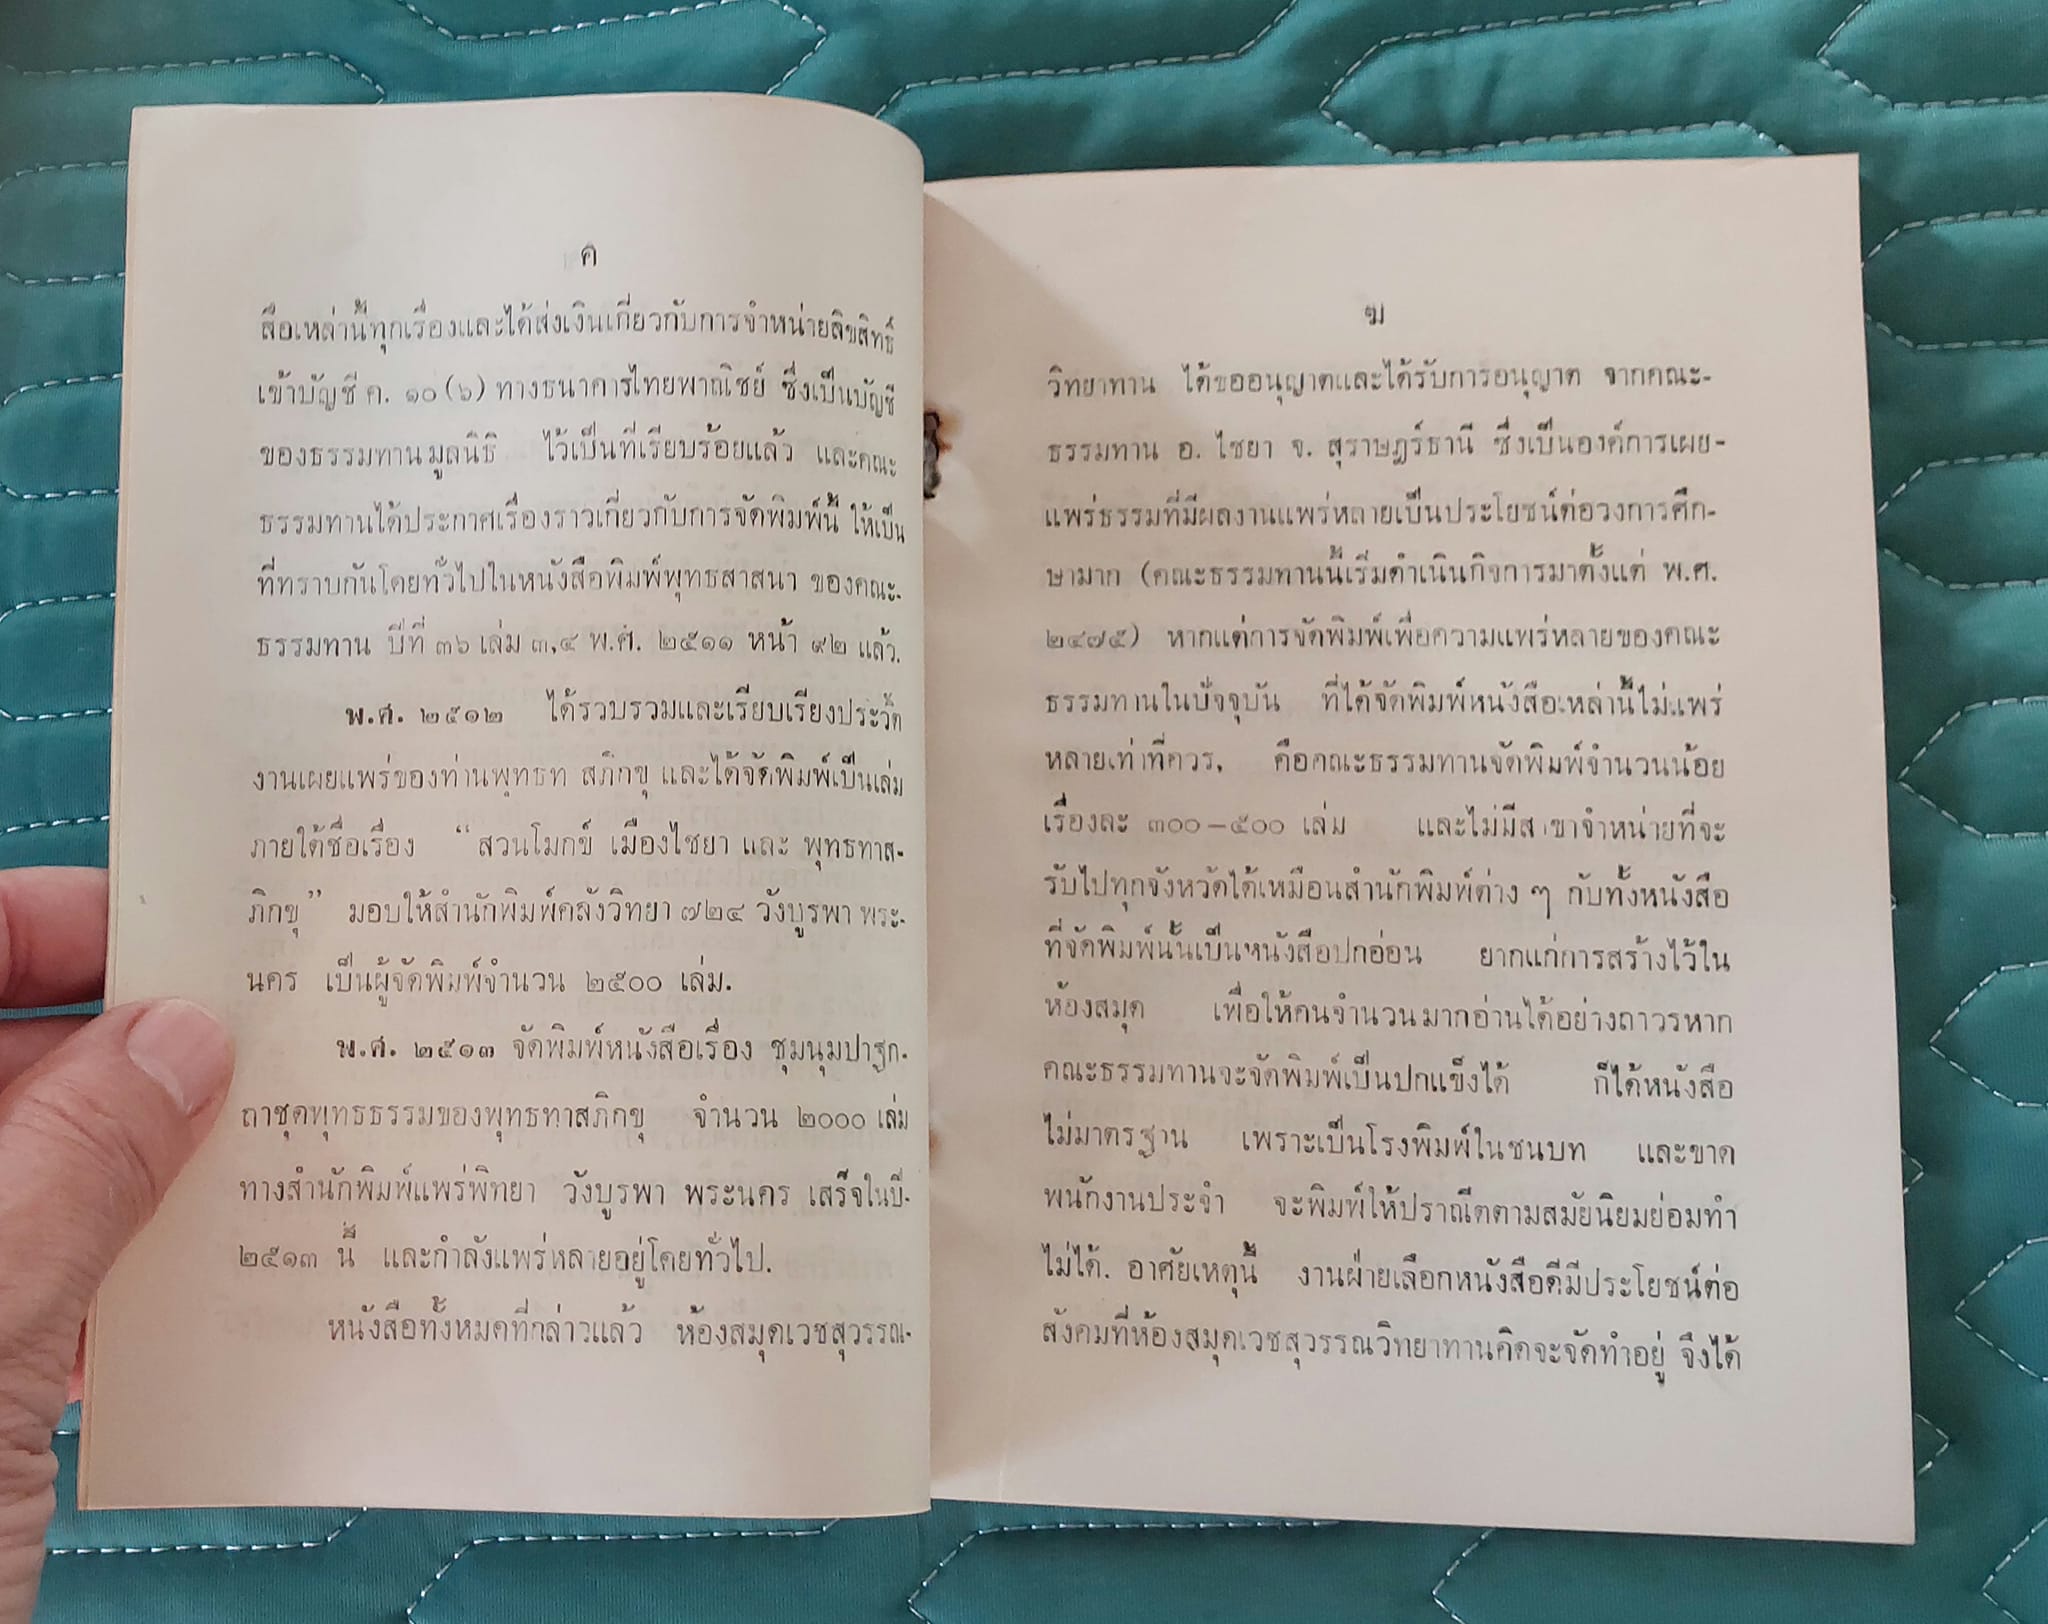 ค
สือเหล่านี้ทุกเรื่องและได้ส่งเงินเกี่ยวกับการจำหน่ายลิขสิทธิ์
เข้าบัญชี ค. ๑๐ (๖) ทางธนาคารไทยพาณิชย์ ซึ่งเป็นบัญชี
ของธรรมทานมูลนิธิ ไว้เป็นที่เรียบร้อยแล้ว และคณะ
ธรรมทานได้ประกาศเรื่องราวเกี่ยวกับการจัดพิมพ์นี้ ให้เป็น
ที่ทราบกันโดยทั่วไปในหนังสือพิมพ์พุทธสาสนา ของคณะ-
ธรรมทาน ปีที่ ๓๖ เล่ม ๓,๔ พ.ศ. ๒๕๑๑ หน้า ๙๒ แล้ว.
พ.ศ. ๒๕๑๒ ได้รวบรวมและเรียบเรียงประวัติ
งานเผยแพร่ของท่านพุทธท สภิกขุ และได้จัดพิมพ์เป็นเล่ม
ภายใต้ชื่อเรื่อง “สวนโมกข์ เมืองไชยา และ พุทธทาส-
ภิกขุ” มอบให้สำนักพิมพ์คลังวิทยา ๗๒๔ วังบูรพา พระ-
นคร เป็นผู้จัดพิมพ์จำนวน ๒๕๐๐ เล่ม.
พ.ศ. ๒๕๑๓ จัดพิมพ์หนังสือเรื่อง ชุมนุมปาฐก-
ถาชุดพุทธธรรมของพุทธทาสภิกขุ จำนวน ๒๐๐๐ เล่ม
ทางสำนักพิมพ์แพร่พิทยา วังบูรพา พระนคร เสร็จในปี-
๒๕๑๓ นี้ และกำลังแพร่หลายอยู่โดยทั่วไป.
หนังสือทั้งหมดที่กล่าวแล้ว ห้องสมุดเวชสุวรรณ-
ฆ
วิทยาทาน ได้ขออนุญาตและได้รับการอนุญาต จากคณะ-
ธรรมทาน อ. ไชยา จ. สุราษฎร์ธานี ซึ่งเป็นองค์การเผย-
แพร่ธรรมที่มีผลงานแพร่หลายเป็นประโยชน์ต่อวงการศึก-
ษามาก (คณะธรรมทานนี้เริ่มดำเนินกิจการมาตั้งแต่ พ.ศ.
๒๔๗๕) หากแต่การจัดพิมพ์เพื่อความแพร่หลายของคณะ
ธรรมทานในปัจจุบัน ที่ได้จัดพิมพ์หนังสือเหล่านี้ไม่แพร่
หลายเท่าที่ควร, คือคณะธรรมทานจัดพิมพ์จำนวนน้อย
เรื่องละ ๓๐๐–๕๐๐ เล่ม และไม่มีสาขาจำหน่ายที่จะ
รับไปทุกจังหวัดได้เหมือนสำนักพิมพ์ต่าง ๆ กับทั้งหนังสือ
ที่จัดพิมพ์นั้นเป็นหนังสือปกอ่อน ยากแก่การสร้างไว้ใน
ห้องสมุด เพื่อให้คนจำนวนมากอ่านได้อย่างถาวรหาก
คณะธรรมทานจะจัดพิมพ์เป็นปกแข็งได้ ก็ได้หนังสือ
ไม่มาตรฐาน เพราะเป็นโรงพิมพ์ในชนบท และขาด
พนักงานประจำ จะพิมพ์ให้ปราณีตตามสมัยนิยมย่อมทำ
ไม่ได้. อาศัยเหตุนี้ งานฝ่ายเลือกหนังสือดีมีประโยชน์ต่อ
สังคมที่ห้องสมุดเวชสุวรรณวิทยาทานคิดจะจัดทำอยู่ จึงได้